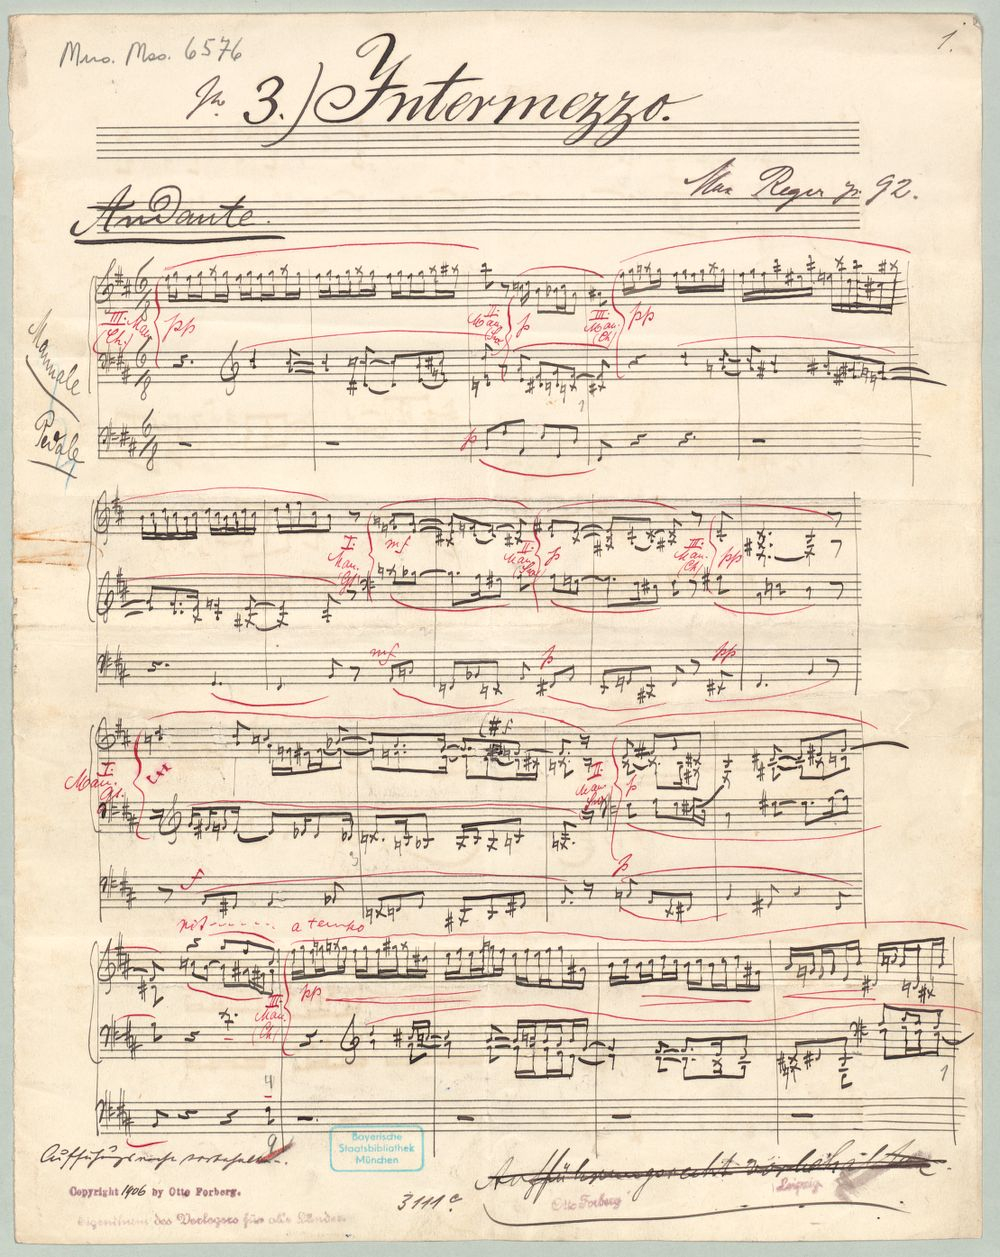 1.
Mus. Mss. 6576
No 3.) Intermezzo.
Max Reger op. 92.
Andante.
Manuale
Pedale
III. Man. (Ch.)
pp
II. Man.
p
III. Man. (Ch)
pp
p
I. Man. Gt.
mf
II. Man.
p
III. Man. (Ch)
pp
mf
p
pp
I. Man. Gt.
II. Man.
p
f
p
rit- - - - - - a tempo
III. Man. Ch
pp
4
Aufführungsrecht vorbehalten.
Bayerische
Staatsbibliothek
München
Aufführungsrecht vorbehalten.
Copyright 1906 by Otto Forberg.
3111c
Otto Forberg
Leipzig
Eigentum des Verlegers für alle Länder.